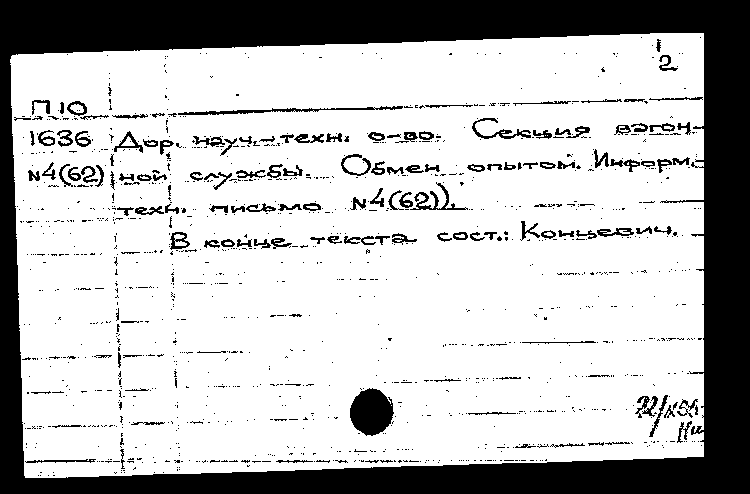 2
П10
1636 Дор. науч.-техн. о-во. Секция вагон-
N4(62) ной службы. Обмен опытом. Информ.-
техн. письмо N4(62)).
В конце текста сост.: Концевич.
22/